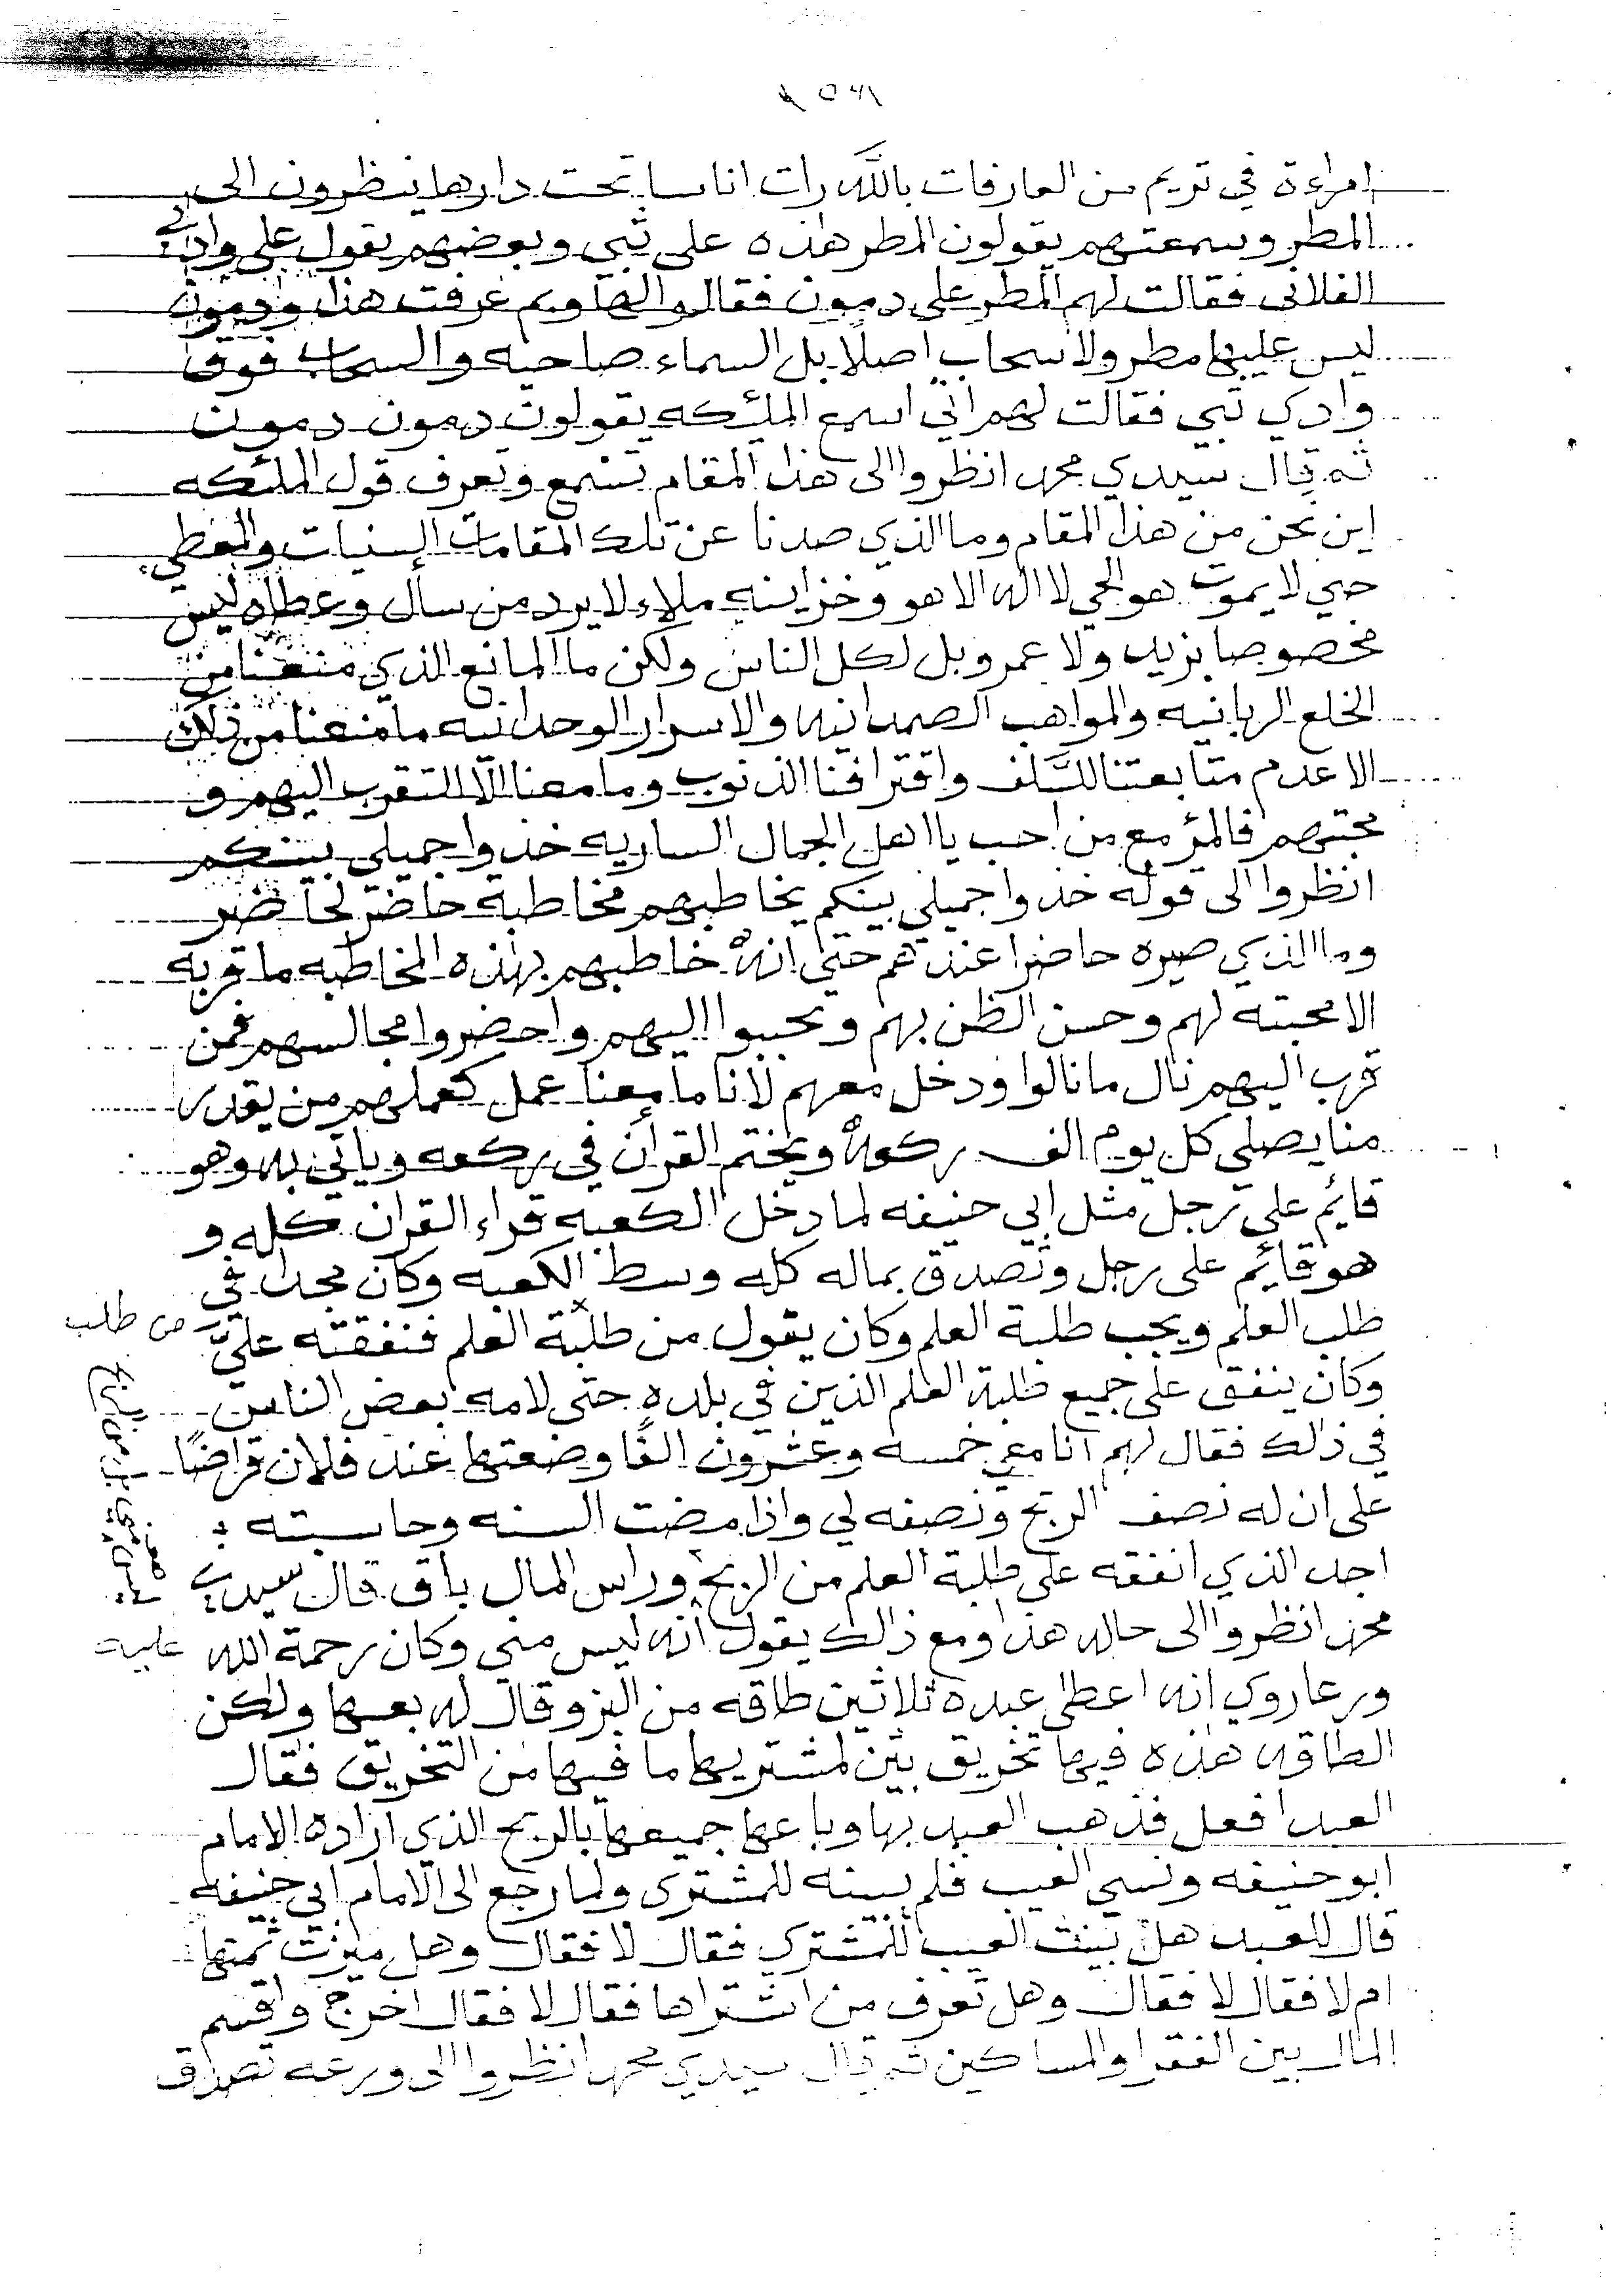 امراءة في تريم من العارفات بالله رات اناسا تحت دارها ينظرون الى
المطر وسمعتهم يقولون المطر هذه على ثبي وبعضهم يقول على وادي
الفلاني فقالت لهم المطر على دمون فقالوا لها وبم عرفت هذا ودمون
ليس عليها مطر ولا سحاب اصلاً بل السماء صاحيه والسحاب فوق
وادي ثبي فقالت لهم اني اسمع الملئكه يقولون دمون دمون
ثم قال سيدي محمد انظروا الى هذا المقام تسمع وتعرف قول الملئكه
اين نحن من هذا المقام وما الذي صدنا عن تلك المقامات السنيات والمعطي
حي لا يموت هو الحي لا اله الا هو وخزاينه ملاء لا يرد من سال وعطاه ليس
مخصوصا بزيد ولا عمرو بل لكل الناس ولكن ما المانع الذي منعنا من
الخلع الربانيه والمواهب الصمدانيه والاسرار الوحدانيه ما منعنا من ذلك
الا عدم متابعتنا للسَّلف واقترافنا الذنوب وما معنا الّا التقرب اليهم و
محبتهم فالمرٔ مع من احب يا اهل الجمال الساريه خذوا جميلي بينكم
انظروا الى قوله خذوا جميلي بينكم يخاطبهم مخاطبة حاضر لحاضر
وما الذي صيره حاضرا عندهم حتى انه خاطبهم بهذه المخاطبه ما قربه
الا محبته لهم وحسن الظن بهم وتحببوا اليهم واحضروا مجالسهم فمن
قرب اليهم نال ما نالوا ودخل معهم لانا ما معنا عمل كعملهم من يقدر
منا يصلي كل يوم الف ركعة ويختم القران في ركعه وياتي به وهو
قايم على رجل مثل ابي حنيفه لما دخل الكعبه قراء القران كله و
هو قايم على رجل وتصدق بماله كله وسط الكعبه وكان مجدا في
طلب العلم ويحب طلبة العلم وكان يقول من طلبة العلم فنفقته عليّ
من طلب
وكان ينفق على جميع طلبة العلم الذين في بلده حتى لامه بعض الناس
في ذالك فقال لهم انا معي خمسه وعشرون الفًا وضعتها عند فلان قراضًا
على ان له نصف الربح ونصفه لي واذا مضت السنه وحاسبته
اجد الذي انفقه على طلبة العلم من الربح وراس المال باق قال سيدي
محمد انظروا الى حاله هذا ومع ذالك يقول انه ليس مني وكان رحمة الله عليه
ورعا روي انه اعطى عبده ثلاثين طاقه من البز وقال له بعها ولكن
الطاقه هذه فيها تخريق بيّن لمشتريها ما فيها من التخريق فقال
العبد افعل فذهب العبد بها وباعها جميعها بالربح الذي اراده الامام
ابو حنيفه ونسي العيب فلم يبينه للمشترى ولما رجع الى الامام ابي حنيفه
قال للعبد هل بينت العيب للمشتري فقال لا فقال وهل ميزت ثمنها
ام لا فقال لا فقال وهل تعرف من اشتراها فقال لا فقال اخرج واقسم
المال بين الفقرا والمساكين ثم قال سيدي محمد انظروا الى ورعه تصدق